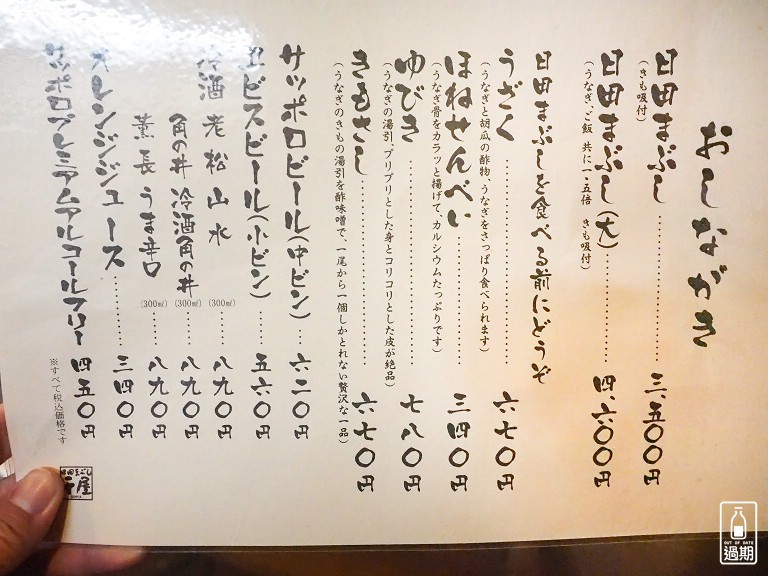 おしながき
日田まぶし………三、五〇〇円
（きも吸付）
日田まぶし（大）………四、六〇〇円
（うなぎ、ご飯 共に一・五倍 きも吸付）
日田まぶしを食べる前にどうぞ
うざく………六七〇円
（うなぎと胡瓜の酢物、うなぎをさっぱり食べられます）
ほねせんべい………三四〇円
（うなぎ骨をカラッと揚げて、カルシウムたっぷりです）
ゆびき………七八〇円
（うなぎの湯引、プリプリとした身とコリコリとした皮が絶品）
きもさし………六七〇円
（うなぎのきもの湯引を酢味噌で、一尾から一個しかとれない贅沢な一品）
サッポロビール（中ビン）…六二〇円
ヱビスビール（小ビン）……五六〇円
冷酒 老松山水（300㎖）…八九〇円
角の井 冷酒角の井（300㎖）…八九〇円
薫長 うま辛口（300㎖）…八九〇円
オレンジジュース………三四〇円
サッポロプレミアムアルコールフリー 四五〇円
※すべて税込価格です
日田まぶし
OUT OF DATE
過期